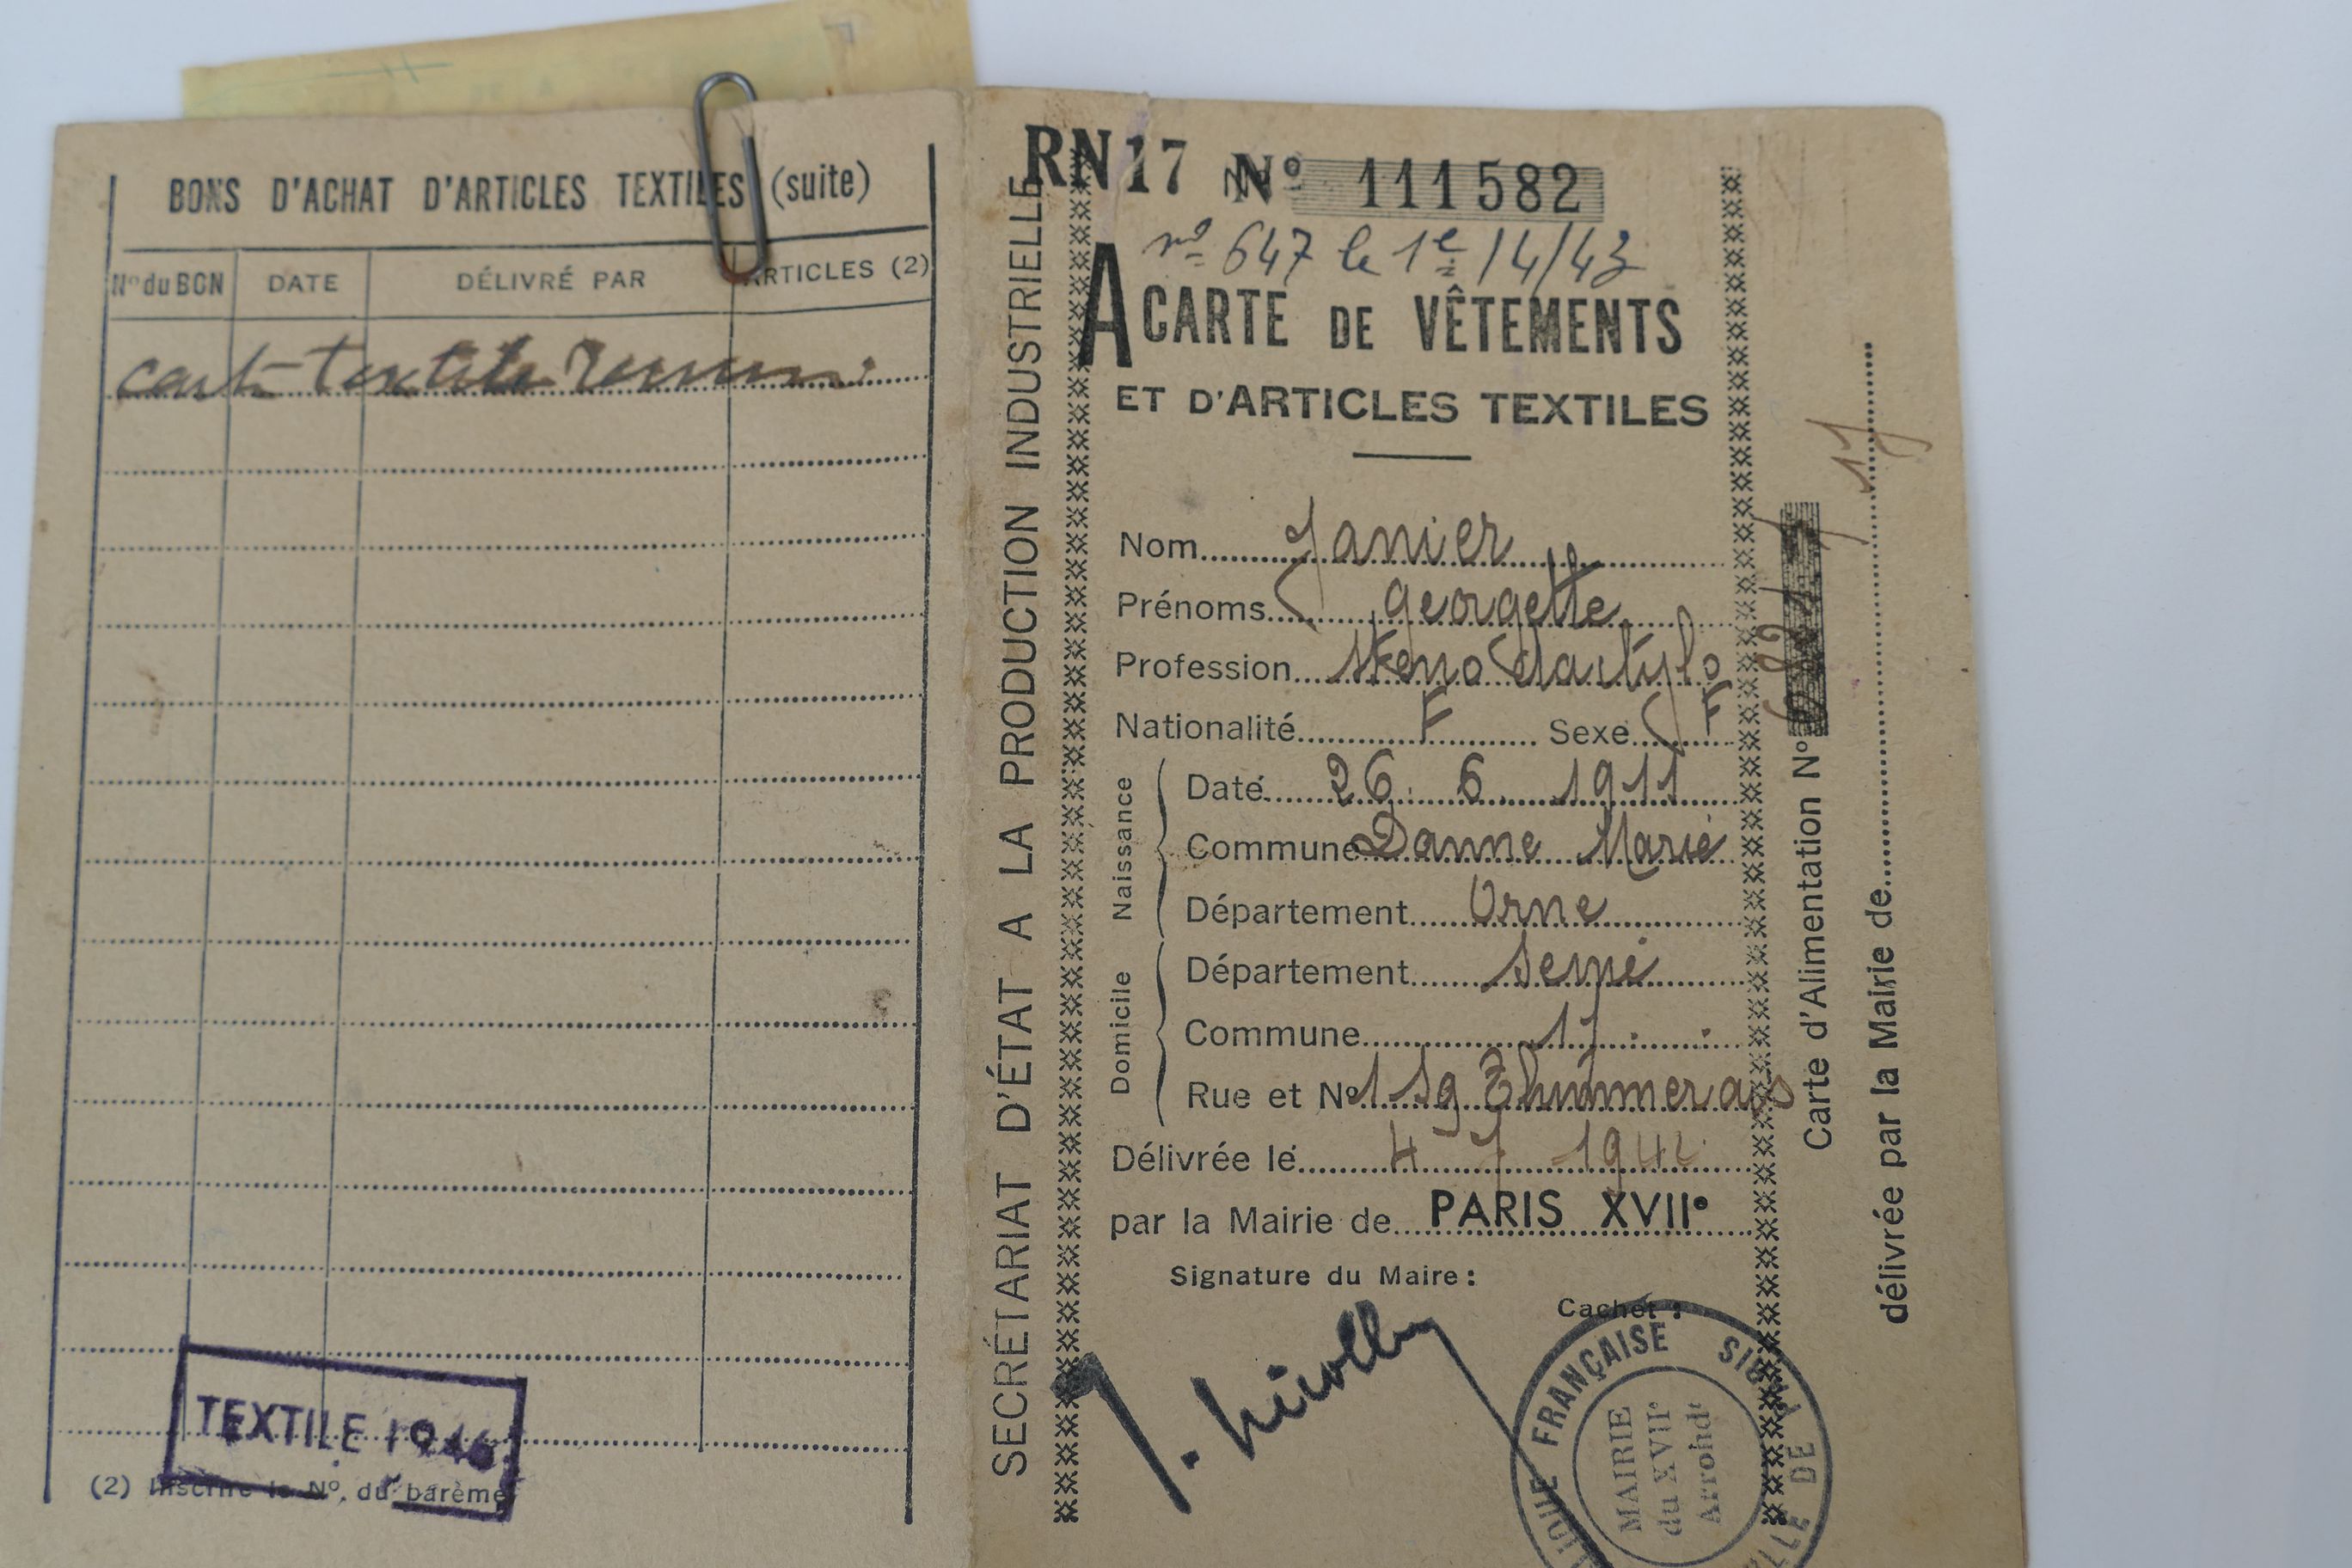 BONS D'ACHAT D'ARTICLES TEXTILES (suite)
N° du BON DATE DÉLIVRÉ PAR ARTICLES (2)
carte textile
TEXTILE 1946
(2) Inscrire le N° du barème
SECRÉTARIAT D'ÉTAT A LA PRODUCTION INDUSTRIELLE
RN 17 N° 111582
n° 647 le 1e/4/43
A CARTE DE VÊTEMENTS
ET D'ARTICLES TEXTILES
Nom Janier
Prénoms Georgette
Profession Steno Dactylo
Nationalité F Sexe F
Naissance
Date 26 6 1911
Commune Danne Marie
Département Orne
Domicile
Département Seine
Commune 17
Rue et N° 1 Sq Thimmerais
Délivrée le 4 7 1942
par la Mairie de PARIS XVIIe
Signature du Maire :
Cachet :
FRANÇAISE
VILLE DE
MAIRIE
du XVIIe
Arrondt
Carte d'Alimentation N°
délivrée par la Mairie de 17